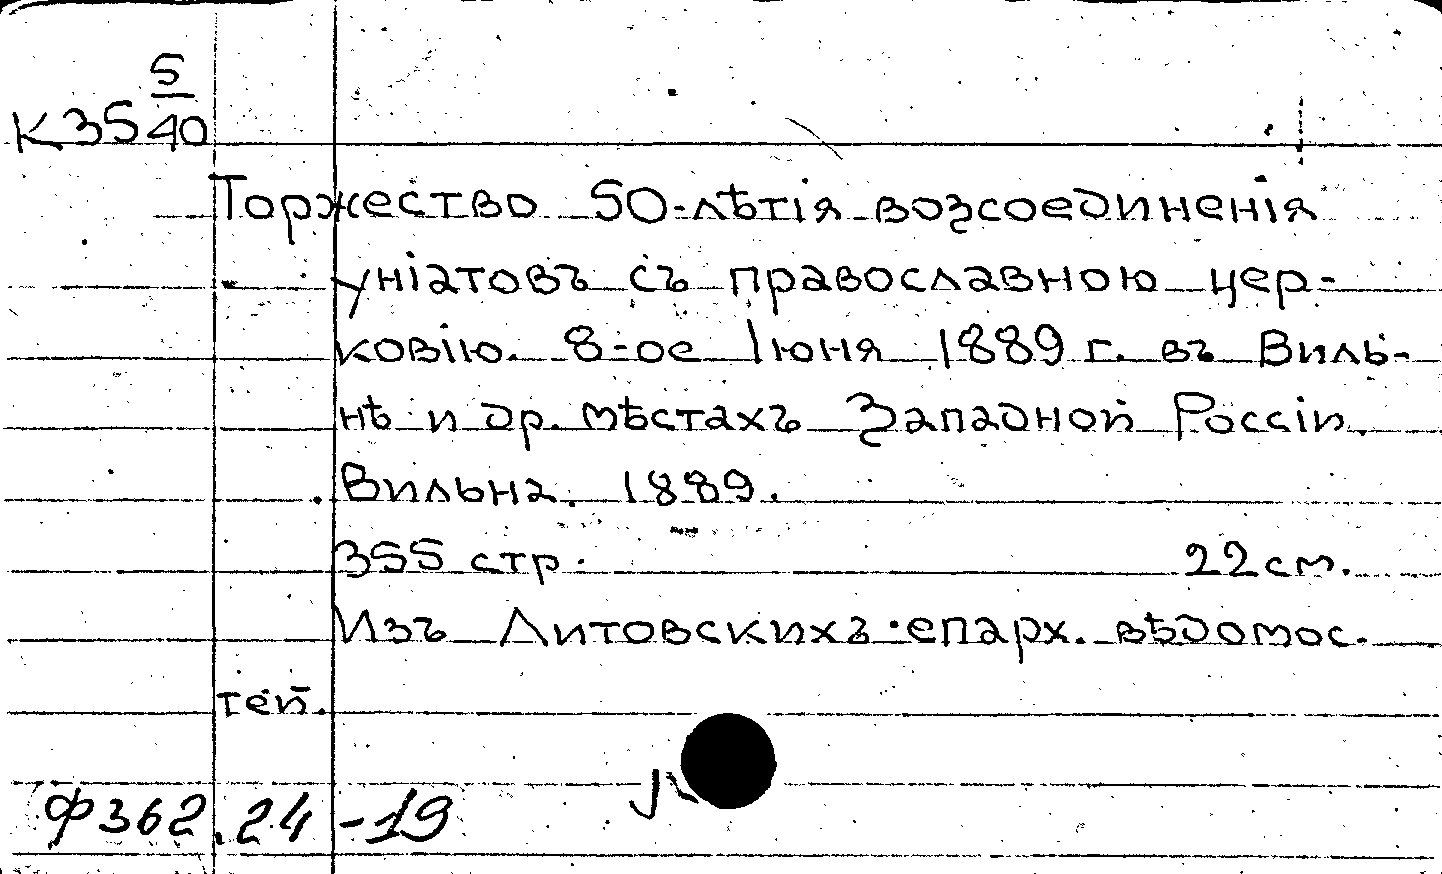 К35 5/40
Торжество 50-лѣтія возсоединенія
уніатовъ съ православною цер-
ковію. 8-ое Іюня 1889 г. въ Виль-
нѣ и др. мѣстахъ Западной Россіи.
Вильна. 1889.
355 стр. 22 см.
Изъ Литовскихъ епарх. вѣдомос-
тей.
Ф362.24-19